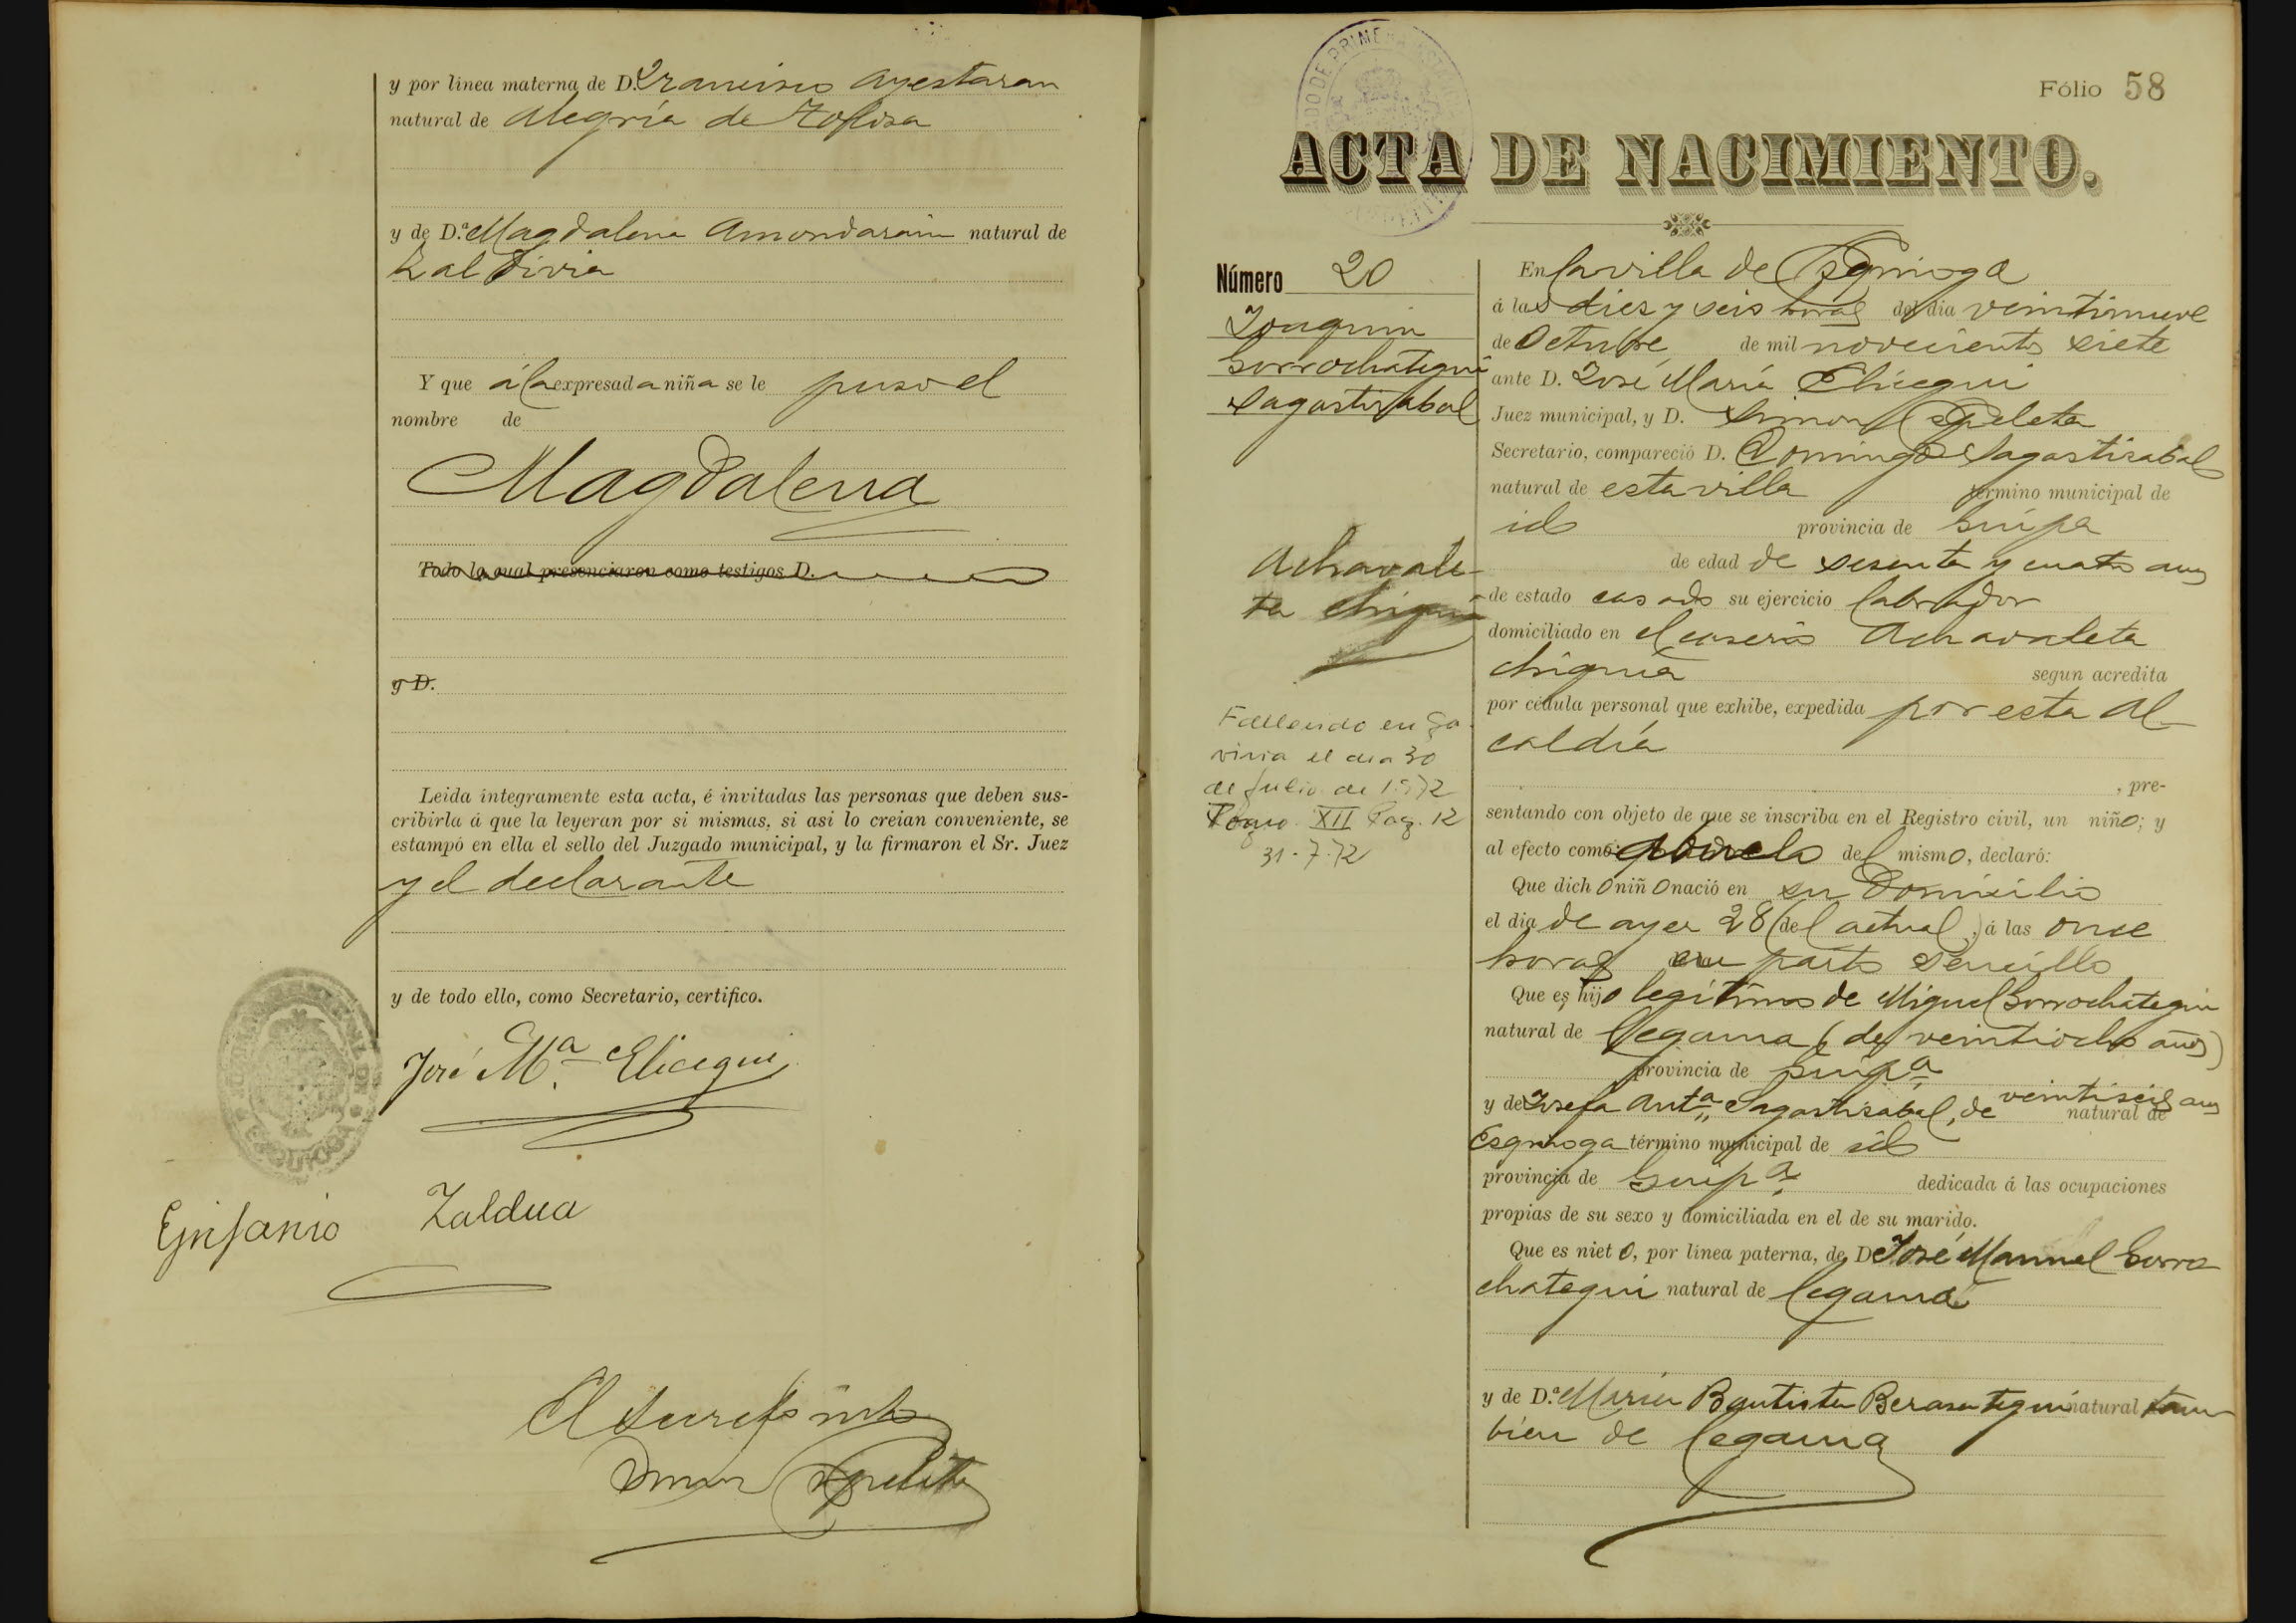 y por línea materna de D. Francisco Ayestaran
natural de Alegría de Tolosa
y de D.ª Magdalena Amondarain natural de
Zaldivia
Y que á la expresada niña se le puso el
nombre de
Magdalena
Todo lo cual presenciaron como testigos D.
y D.
Leida íntegramente esta acta, é invitadas las personas que deben sus-
cribirla á que la leyeran por si mismas, si asi lo creian conveniente, se
estampó en ella el sello del Juzgado municipal, y la firmaron el Sr. Juez
y el declarante
y de todo ello, como Secretario, certifico.
José M.ª Elicegui
Epifanio Zaldua
Simon Ezpeleta
Fólio 58
ACTA DE NACIMIENTO.
Número 20
Joaquin
Gorrochategui
Sagastizabal
Acharale-
ta chiquia
Fallecido en Ga
viria el dia 30
de Julio de 1972
Tomo XII Pag. 12
31-7-72
En la villa de Ezquioga
á las diez y seis horas del dia veintinueve
de Octubre de mil novecientos siete
ante D. José María Elicegui
Juez municipal, y D. Simon Ezpeleta
Secretario, compareció D. Domingo Sagastizabal
natural de esta villa término municipal de
id provincia de Guipa
de edad de sesenta y cuatro años
de estado casado su ejercicio labrador
domiciliado en el caserío Acharaleta
chiquia segun acredita
por cédula personal que exhibe, expedida por esta Al-
caldía
, pre-
sentando con objeto de que se inscriba en el Registro civil, un niño; y
al efecto como abuelo del mismo, declaró:
Que dicho niño nació en su domicilio
el dia de ayer 28 (del actual,) á las once
horas en parto sencillo
Que es hijo legítimo de Miguel Gorrochategui
natural de Cegama (de veintiocho años)
provincia de Guipª
y de Josefa Antª Sagastizabal, de veintiseis años natural de
Ezquioga término municipal de id
provincia de Guipª dedicada á las ocupaciones
propias de su sexo y domiciliada en el de su marido.
Que es nieto, por línea paterna, de D José Manuel Gorro
chategui natural de Cegama
y de D.ª María Bautista Berasategui natural tam
bien de Cegama